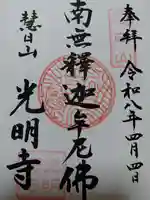 奉拝 令和八年四月四日
南無釋迦牟尼佛
慧日山
光明寺